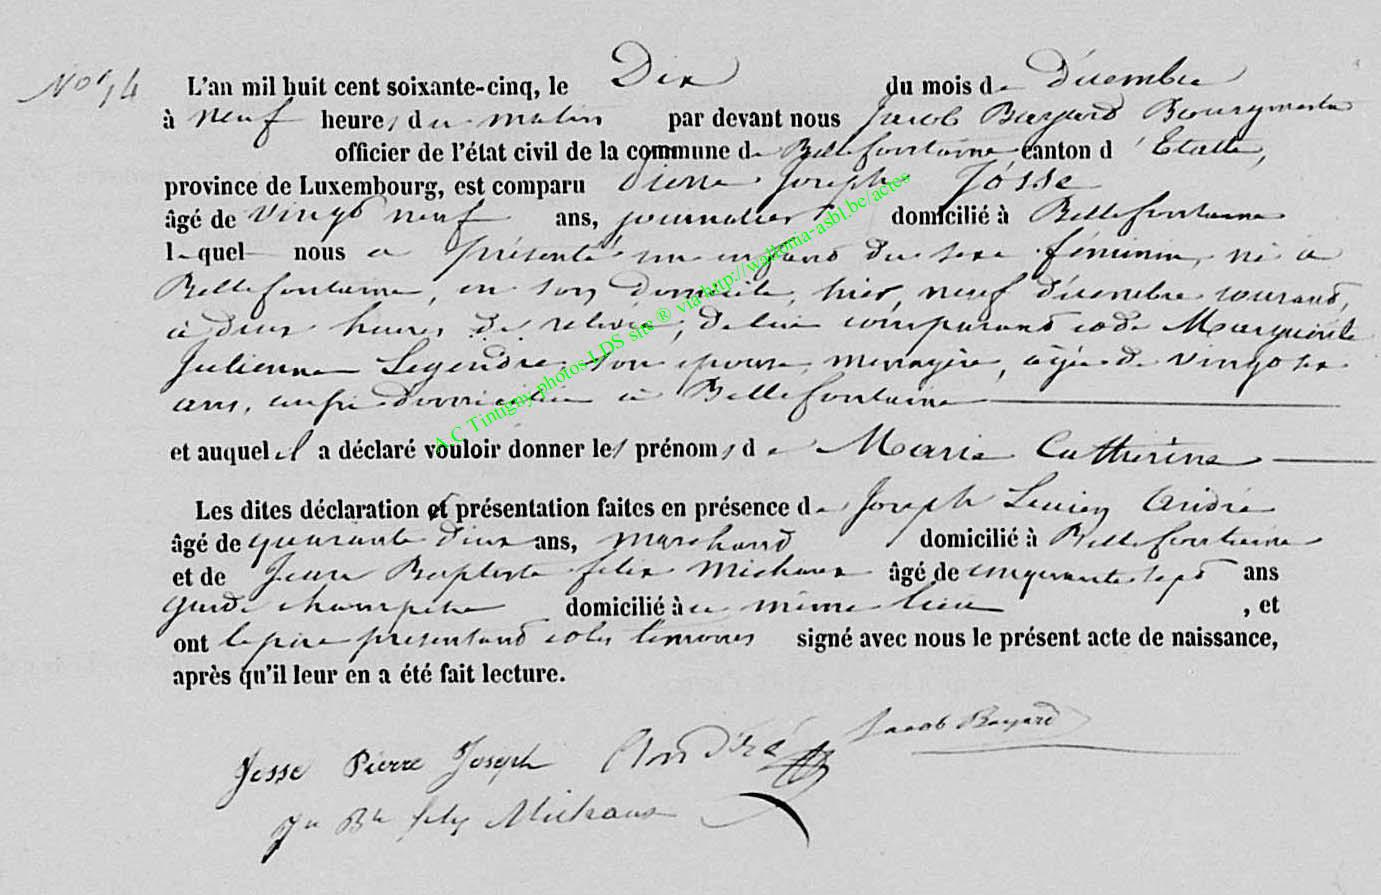 No 74
L'an mil huit cent soixante-cinq, le Dix du mois de Décembre
à neuf heures du matin par devant nous Jacob Bayard Bourgmestre
officier de l'état civil de la commune de Bellefontaine canton d'Etalle,
province de Luxembourg, est comparu Pierre Joseph Josse
âgé de vingt neuf ans, journalier domicilié à Bellefontaine
lequel nous a présenté un enfant du sexe féminin, né à
Bellefontaine, en son domicile, hier, neuf décembre courant,
à deux heures de relevée, de lui comparant et de Marguerite
Julienne Legendre son épouse, ménagère, âgée de vingt six
ans, aussi domiciliée à Bellefontaine
et auquel il a déclaré vouloir donner les prénoms de Marie Catherine
Les dites déclaration et présentation faites en présence de Joseph Lucien André
âgé de quarante deux ans, marchand domicilié à Bellefontaine
et de Jean Baptiste felix Michaux âgé de cinquante sept ans
garde champêtre domicilié à ce même lieu , et
ont le père présentant et les témoins signé avec nous le présent acte de naissance,
après qu'il leur en a été fait lecture.
Josse Pierre Joseph André Jacob Bayard
Jn Bte felix Michaux
A.C Tintigny photos LDS site ® via http://wallonia-asbl.be/actes